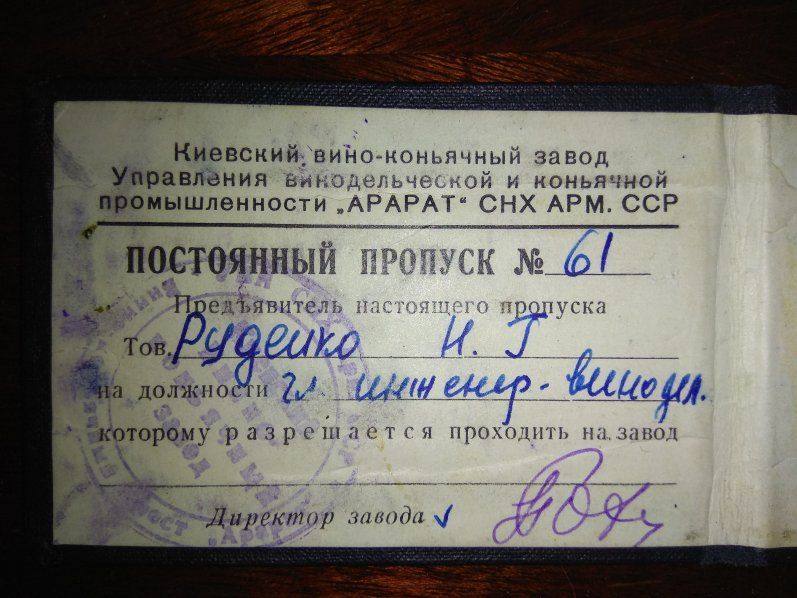 Киевский вино-коньячный завод
Управления винодельческой и коньячной
промышленности „АРАРАТ“ СНХ АРМ. ССР
ПОСТОЯННЫЙ ПРОПУСК № 61
Предъявитель настоящего пропуска
Тов. Руденко Н. Г
на должности гл. инженер-винодел.
которому разрешается проходить на завод
Директор завода